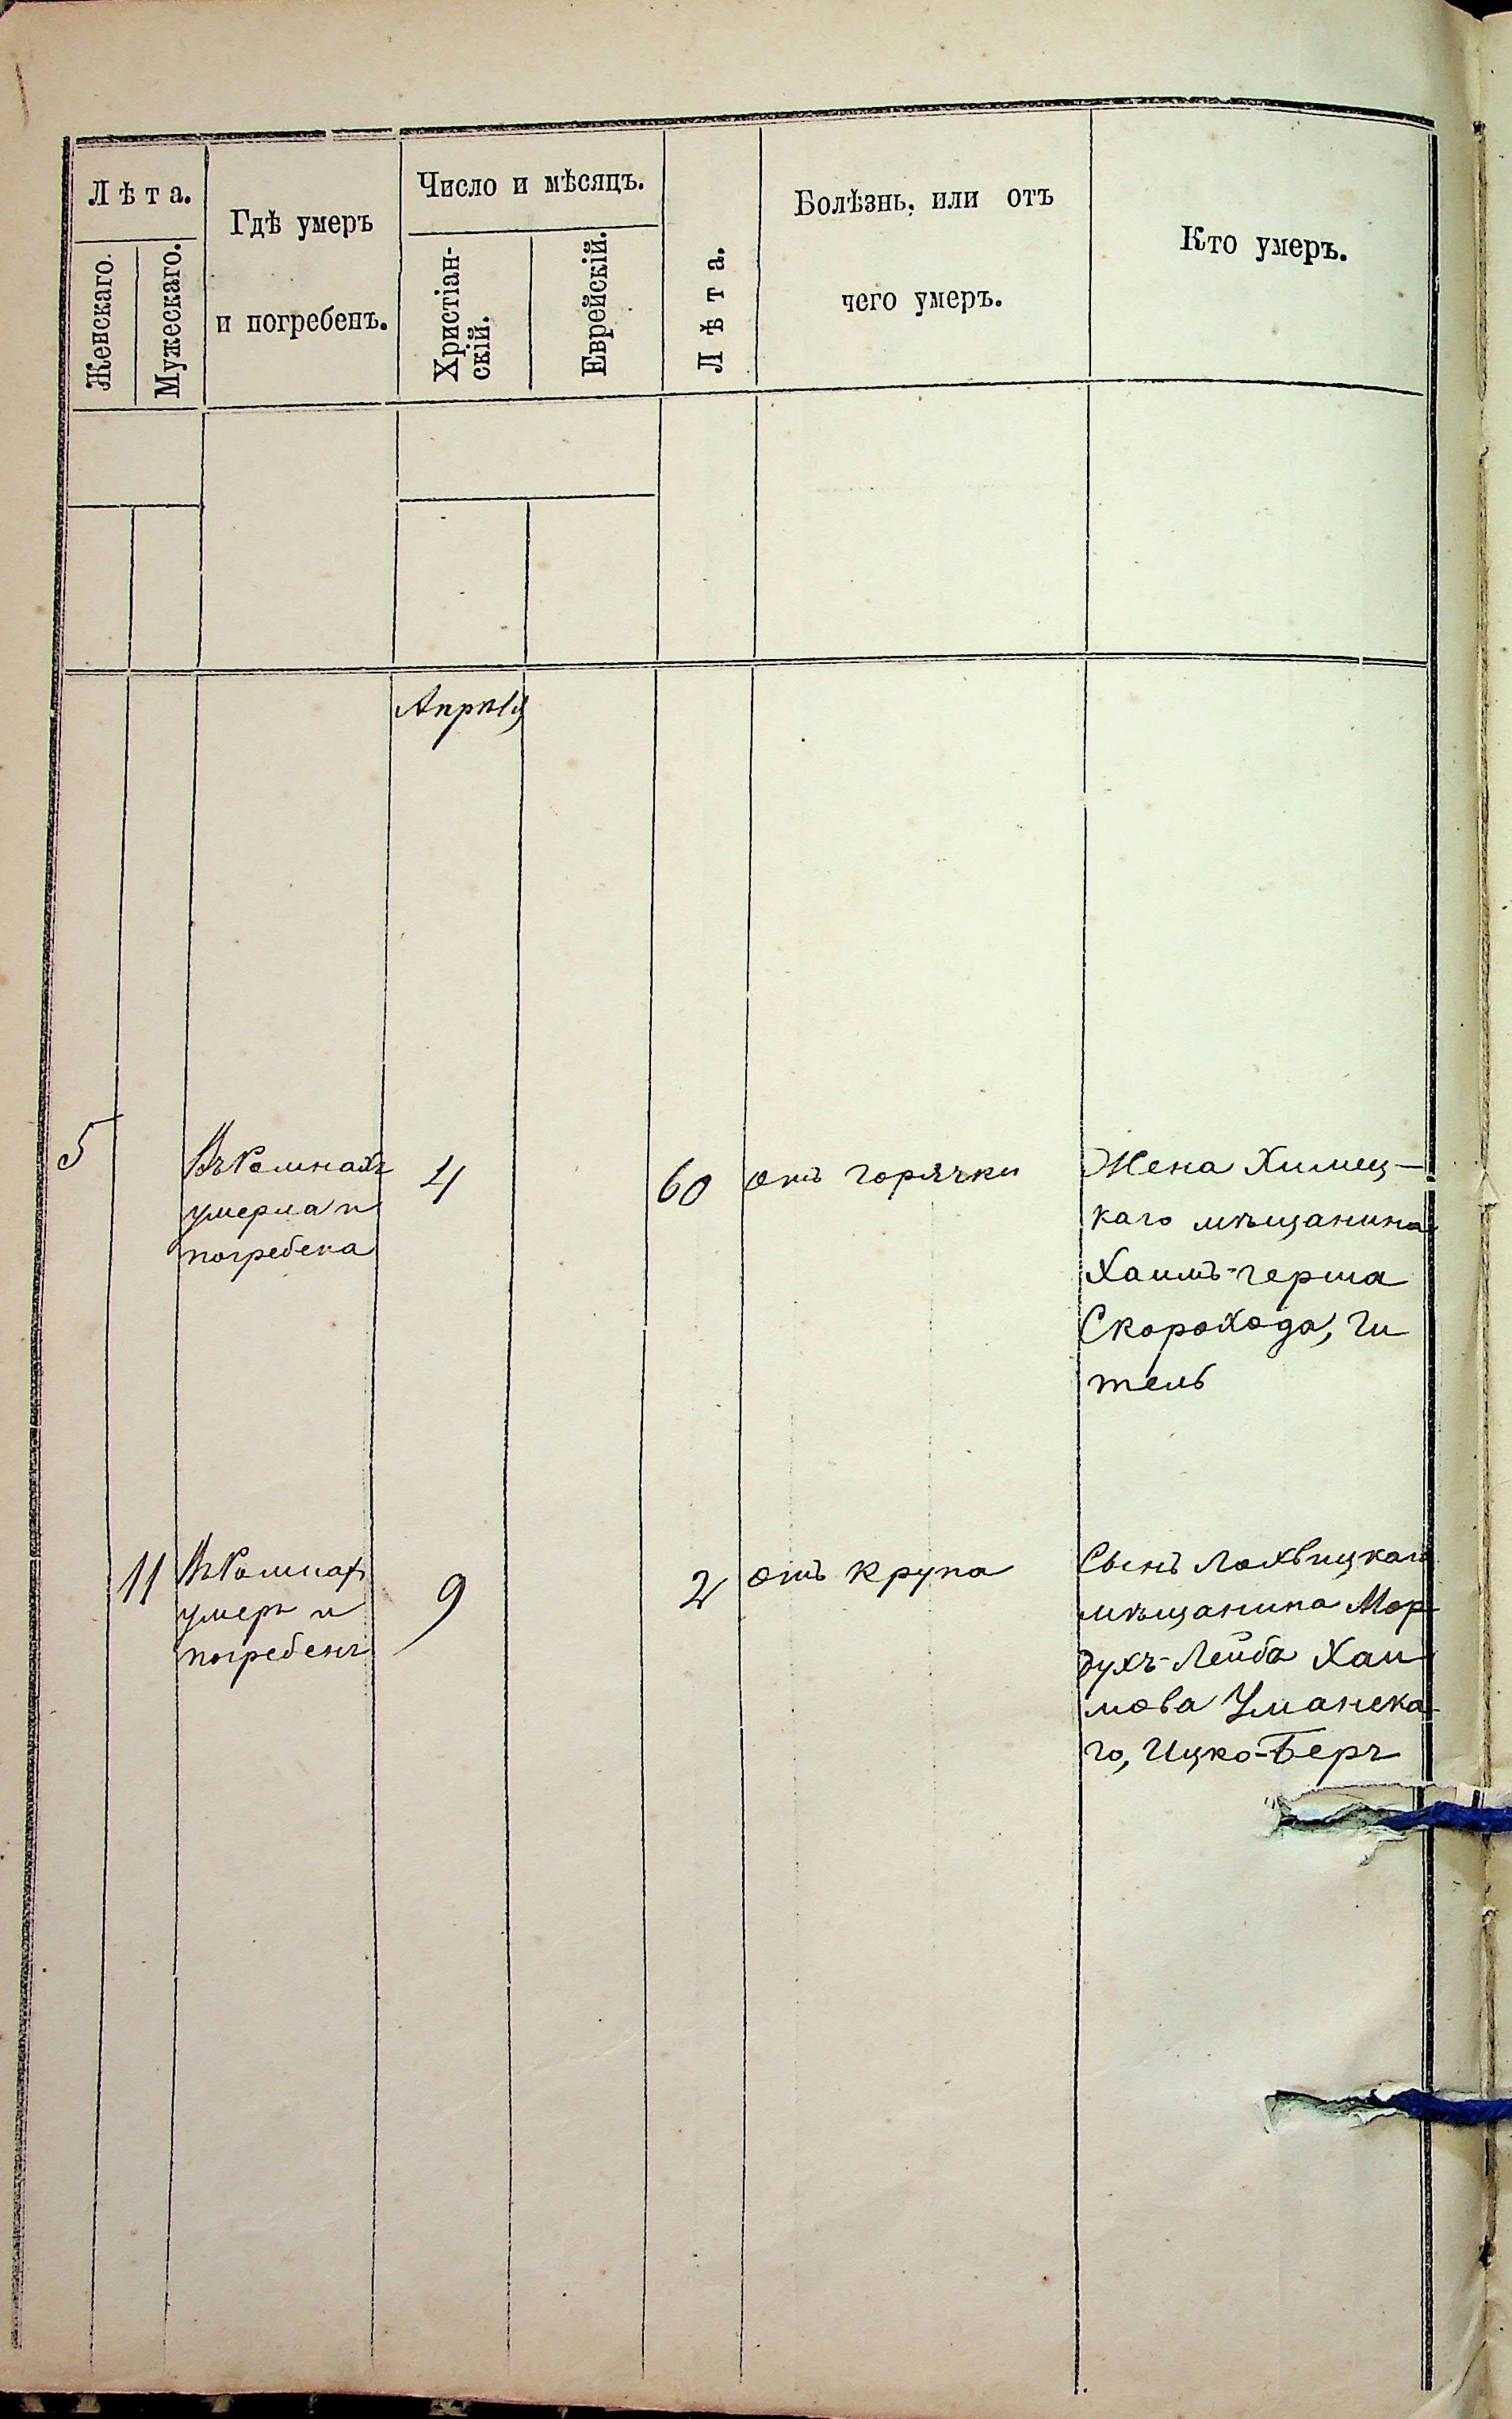 Лѣта.
Женскаго.
Мужескаго.
Гдѣ умеръ
и погребенъ.
Число и мѣсяцъ.
Христіан-
скій.
Еврейскій.
Лѣта.
Болѣзнь, или отъ
чего умеръ.
Кто умеръ.
Апрѣля
5
Въ Ромнахъ
умерла и
погребена
4
60
отъ горячки
Жена Химец-
каго мѣщанина
Хаимъ-герша
Скорохода, Ги
тель
11
Въ Ромнах
умеръ и
погребенъ
9
2
отъ крупа
Сынъ Лохвицкаго
мѣщанина Мор
духъ-Лейба Хаи
мова Уманска-
го, Ицко-Беръ